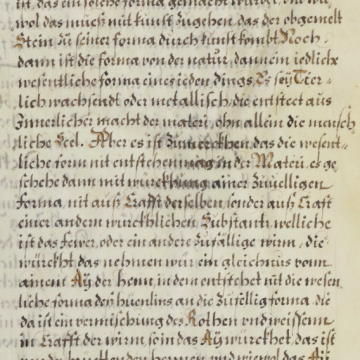 ist, das ein solche forma gemacht würdt, und wie
wol das müeß mit kunst zugehen, das der obgemelt
Stein zu seiner forma durch kunst kombt Noch
dann ist die forma von der natur, dann ein iedliche
wesentliche forma eines ieden dings, Es sey Tier-
lich wachsendt oder metallisch, die entsteet aus
Innerlicher macht der materi, ohn allein die mensch
liche Seel. Aber es ist zumerckhen, das die wesent-
liche form nit entstehen mag in der Materi, es ge
schehe dann mit würckhung ainer zuuelligen
forma, nit auß Crafft derselben sonder auß Craft
einer andern würckhlichen Substantz, welliche
ist das fewer, oder ein andere zufällige wirm, die
würckht, das nemen wür ein gleichnus vonn
ainem Aÿ der henn, in dem entstehet nit die wesen
liche forma deß huenlins an die zuuellig forma, die
da ist ein vermischung des Rothen und weissenn
in Crafft der wirm, so in das Aÿ würckhet, das ist
von der bruettenden hennen, und wiewol das Aÿ